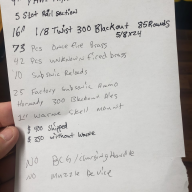 5 Slot Rail Section
16" 1/8 Twist 300 Blackout 85 Rounds
5/8x24
73 Pcs Once Fire Brass
42 Pcs unknown Fired brass
10 Subsonic Reloads
25 Factory Subsonic Ammo
Hornady 300 Blackout Dies
Shell Mount
$ 400 Shipped
$ 350 without
NO BCG/Charging Handle
NO Muzzle Device